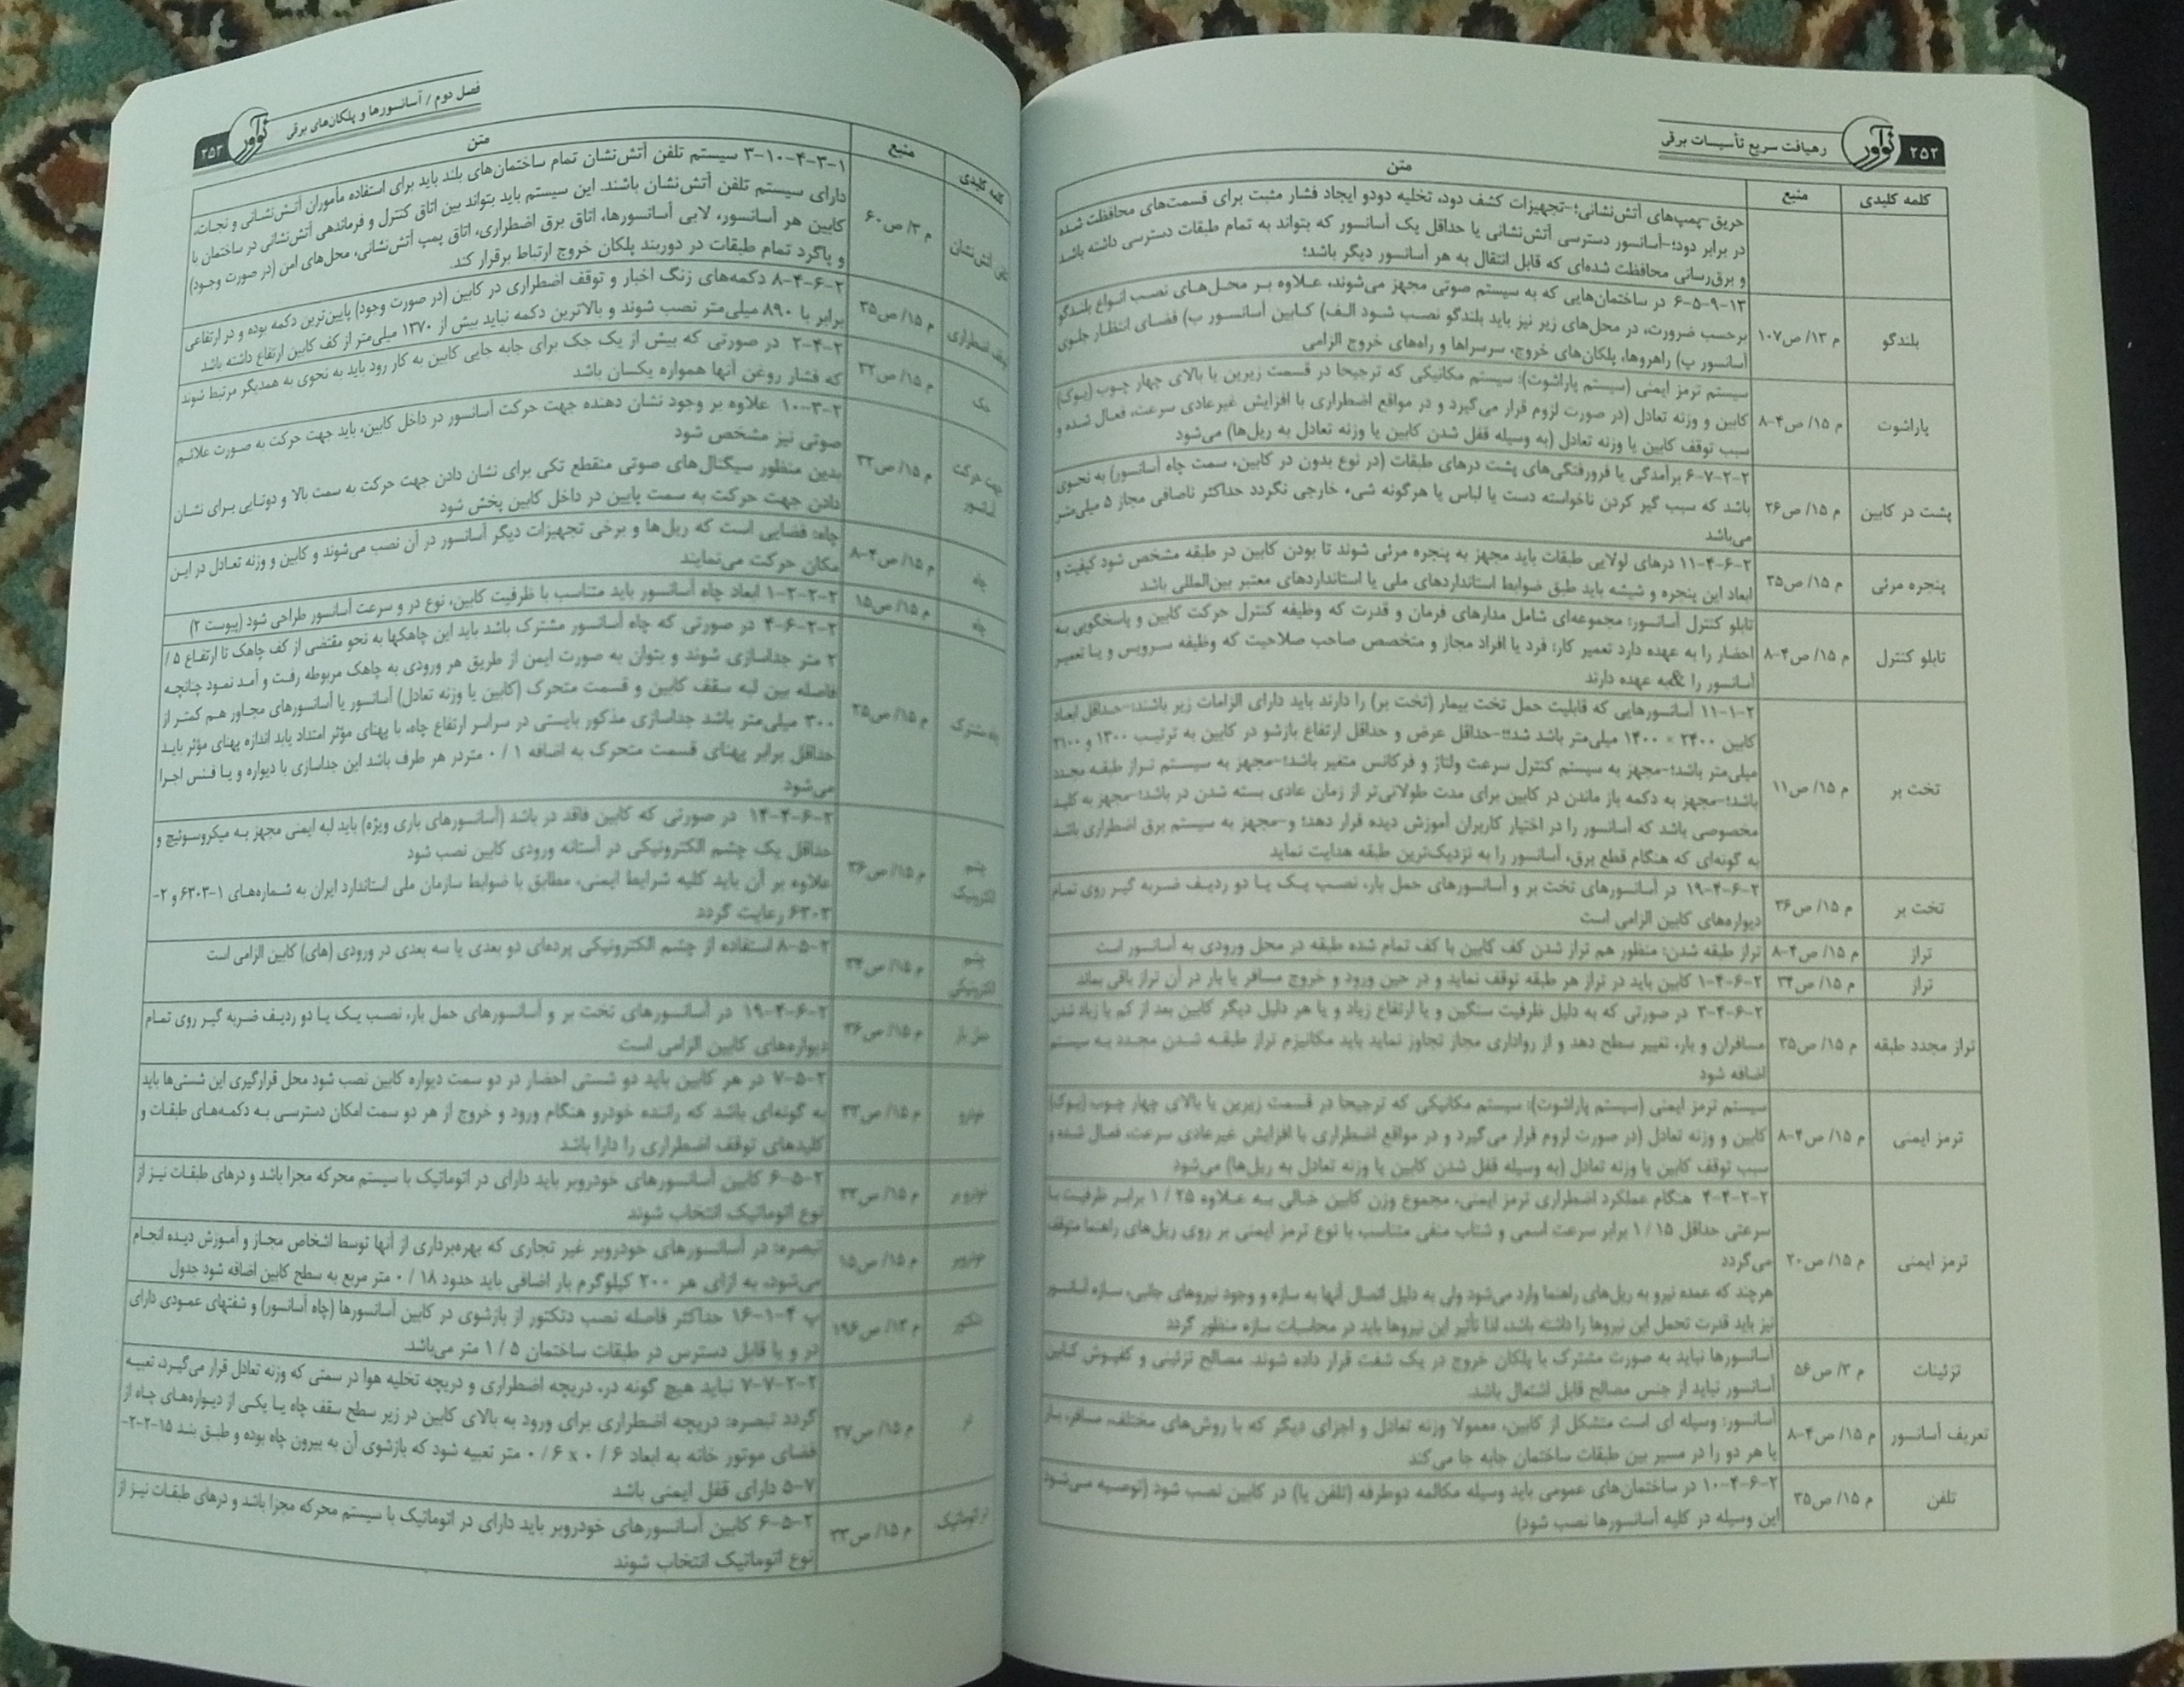 ۲۵۲
نوآور
رهیافت سریع تأسیسات برقی
کلمه کلیدی
منبع
متن
حریق-پمپ‌های آتش‌نشانی؛-تجهیزات کشف دود، تخلیه دودو ایجاد فشار مثبت برای قسمت‌های محافظت شده
در برابر دود؛-آسانسور دسترسی آتش‌نشانی یا حداقل یک آسانسور که بتواند به تمام طبقات دسترسی داشته باشد
و برق‌رسانی محافظت شده‌ای که قابل انتقال به هر آسانسور دیگر باشد؛
بلندگو
م ۱۳/ ص۱۰۷
۱۳-۹-۵-۶ در ساختمان‌هایی که به سیستم صوتی مجهز می‌شوند، علاوه بر محل‌های نصب انواع بلندگو
برحسب ضرورت، در محل‌های زیر نیز باید بلندگو نصب شود الف) کابین آسانسور ب) فضای انتظار جلوی
آسانسور پ) راهروها، پلکان‌های خروج، سرسراها و راه‌های خروج الزامی
پاراشوت
م ۱۵/ ص۴-۸
سیستم ترمز ایمنی (سیستم پاراشوت): سیستم مکانیکی که ترجیحا در قسمت زیرین یا بالای چهار چوب (یوک)
کابین و وزنه تعادل (در صورت لزوم قرار می‌گیرد و در مواقع اضطراری با افزایش غیرعادی سرعت، فعال شده و
سبب توقف کابین یا وزنه تعادل (به وسیله قفل شدن کابین یا وزنه تعادل به ریل‌ها) می‌شود
پشت در کابین
م ۱۵/ ص۲۶
۲-۲-۷-۶ برآمدگی یا فرورفتگی‌های پشت درهای طبقات (در نوع بدون در کابین، سمت چاه آسانسور) به نحوی
باشد که سبب گیر کردن ناخواسته دست یا لباس یا هرگونه شیء خارجی نگردد حداکثر ناصافی مجاز ۵ میلی‌متر
می‌باشد
پنجره مرئی
م ۱۵/ ص۳۵
۲-۶-۴-۱۱ درهای لولایی طبقات باید مجهز به پنجره مرئی شوند تا بودن کابین در طبقه مشخص شود کیفیت و
ابعاد این پنجره و شیشه باید طبق ضوابط استانداردهای ملی یا استانداردهای معتبر بین‌المللی باشد
تابلو کنترل
م ۱۵/ ص۴-۸
تابلو کنترل آسانسور: مجموعه‌ای شامل مدارهای فرمان و قدرت که وظیفه کنترل حرکت کابین و پاسخگویی به
احضار را به عهده دارد تعمیر کار: فرد یا افراد مجاز و متخصص صاحب صلاحیت که وظیفه سرویس و یا تعمیر
آسانسور را &به عهده دارند
تخت بر
م ۱۵/ ص۱۱
۲-۱-۱۱ آسانسورهایی که قابلیت حمل تخت بیمار (تخت بر) را دارند باید دارای الزامات زیر باشند:-حداقل ابعاد
کابین ۲۴۰۰ × ۱۴۰۰ میلی‌متر باشد شد؛؛-حداقل عرض و حداقل ارتفاع بازشو در کابین به ترتیب ۱۳۰۰ و ۲۱۰۰
میلی‌متر باشد؛-مجهز به سیستم کنترل سرعت ولتاژ و فرکانس متغیر باشد؛-مجهز به سیستم تراز طبقه مجدد
باشد؛-مجهز به دکمه باز ماندن در کابین برای مدت طولانی‌تر از زمان عادی بسته شدن در باشد؛-مجهز به کلید
مخصوصی باشد که آسانسور را در اختیار کاربران آموزش دیده قرار دهد؛ و-مجهز به سیستم برق اضطراری باشد
به گونه‌ای که هنگام قطع برق، آسانسور را به نزدیک‌ترین طبقه هدایت نماید
تخت بر
م ۱۵/ ص۳۶
۲-۶-۴-۱۹ در آسانسورهای تخت بر و آسانسورهای حمل بار، نصب یک یا دو ردیف ضربه گیر روی تمام
دیواره‌های کابین الزامی است
تراز
م ۱۵/ ص۴-۸
تراز طبقه شدن: منظور هم تراز شدن کف کابین با کف تمام شده طبقه در محل ورودی به آسانسور است
تراز
م ۱۵/ ص۳۴
۲-۶-۴-۱ کابین باید در تراز هر طبقه توقف نماید و در حین ورود و خروج مسافر یا بار در آن تراز باقی بماند
تراز مجدد طبقه
م ۱۵/ ص۳۵
۲-۶-۴-۳ در صورتی که به دلیل ظرفیت سنگین و یا ارتفاع زیاد و یا هر دلیل دیگر کابین بعد از کم یا زیاد شدن
مسافران و بار، تغییر سطح دهد و از رواداری مجاز تجاوز نماید باید مکانیزم تراز طبقه شدن مجدد به سیستم
اضافه شود
ترمز ایمنی
م ۱۵/ ص۴-۸
سیستم ترمز ایمنی (سیستم پاراشوت): سیستم مکانیکی که ترجیحا در قسمت زیرین یا بالای چهار چوب (یوک)
کابین و وزنه تعادل (در صورت لزوم قرار می‌گیرد و در مواقع اضطراری با افزایش غیرعادی سرعت، فعال شده و
سبب توقف کابین یا وزنه تعادل (به وسیله قفل شدن کابین یا وزنه تعادل به ریل‌ها) می‌شود
ترمز ایمنی
م ۱۵/ ص۲۰
۲-۲-۴-۴ هنگام عملکرد اضطراری ترمز ایمنی، مجموع وزن کابین خالی به علاوه ۱/۲۵ برابر ظرفیت با
سرعتی حداقل ۱/۱۵ برابر سرعت اسمی و شتاب منفی متناسب با نوع ترمز ایمنی بر روی ریل‌های راهنما متوقف
می‌گردد
هرچند که عمده نیرو به ریل‌های راهنما وارد می‌شود ولی به دلیل اتصال آنها به سازه و وجود نیروهای جانبی، سازه آسانسور
نیز باید قدرت تحمل این نیروها را داشته باشد، لذا تأثیر این نیروها باید در محاسبات سازه منظور گردد
تزئینات
م ۳/ ص۵۶
آسانسورها نباید به صورت مشترک با پلکان خروج در یک شفت قرار داده شوند. مصالح تزئینی و کفپوش کابین
آسانسور نباید از جنس مصالح قابل اشتعال باشد.
تعریف آسانسور
م ۱۵/ ص۴-۸
آسانسور: وسیله ای است متشکل از کابین، معمولا وزنه تعادل و اجزای دیگر که با روش‌های مختلف، مسافر، بار
یا هر دو را در مسیر بین طبقات ساختمان جابه جا می‌کند
تلفن
م ۱۵/ ص۳۵
۲-۶-۴-۱۰ در ساختمان‌های عمومی باید وسیله مکالمه دوطرفه (تلفن یا) در کابین نصب شود (توصیه می‌شود
این وسیله در کلیه آسانسورها نصب شود)
فصل دوم / آسانسورها و پلکان‌های برقی
نوآور
۲۵۳
کلمه کلیدی
منبع
متن
تلفن آتش‌نشان
م ۳/ ص۶۰
۳-۱۰-۴-۳-۱ سیستم تلفن آتش‌نشان تمام ساختمان‌های بلند باید برای استفاده مأموران آتش‌نشانی و نجات،
دارای سیستم تلفن آتش‌نشان باشند. این سیستم باید بتواند بین اتاق کنترل و فرماندهی آتش‌نشانی در ساختمان با
کابین هر آسانسور، لابی آسانسورها، اتاق برق اضطراری، اتاق پمپ آتش‌نشانی، محل‌های امن (در صورت وجود)
و پاگرد تمام طبقات در دوربند پلکان خروج ارتباط برقرار کند.
توقف اضطراری
م ۱۵/ ص۳۵
۲-۶-۴-۸ دکمه‌های زنگ اخبار و توقف اضطراری در کابین (در صورت وجود) پایین‌ترین دکمه بوده و در ارتفاعی
برابر با ۸۹۰ میلی‌متر نصب شوند و بالاترین دکمه نباید بیش از ۱۳۷۰ میلی‌متر از کف کابین ارتفاع داشته باشد
جک
م ۱۵/ ص۳۲
۲-۴-۲ در صورتی که بیش از یک جک برای جابه جایی کابین به کار رود باید به نحوی به همدیگر مرتبط شوند
که فشار روغن آنها همواره یکسان باشد
جهت حرکت
آسانسور
م ۱۵/ ص۳۲
۲-۳-۱۰ علاوه بر وجود نشان دهنده جهت حرکت آسانسور در داخل کابین، باید جهت حرکت به صورت علائم
صوتی نیز مشخص شود
بدین منظور سیگنال‌های صوتی منقطع تکی برای نشان دادن جهت حرکت به سمت بالا و دوتایی برای نشان
دادن جهت حرکت به سمت پایین در داخل کابین پخش شود
چاه
م ۱۵/ ص۴-۸
چاه: فضایی است که ریل‌ها و برخی تجهیزات دیگر آسانسور در آن نصب می‌شوند و کابین و وزنه تعادل در این
مکان حرکت می‌نمایند
چاه
م ۱۵/ ص۱۵
۲-۲-۲-۱ ابعاد چاه آسانسور باید متناسب با ظرفیت کابین، نوع در و سرعت آسانسور طراحی شود (پیوست ۲)
چاه مشترک
م ۱۵/ ص۲۵
۲-۲-۶-۴ در صورتی که چاه آسانسور مشترک باشد باید این چاهکها به نحو مقتضی از کف چاهک تا ارتفاع ۵ /
۲ متر جداسازی شوند و بتوان به صورت ایمن از طریق هر ورودی به چاهک مربوطه رفت و آمد نمود چنانچه
فاصله بین لبه سقف کابین و قسمت متحرک (کابین یا وزنه تعادل) آسانسور یا آسانسورهای مجاور هم کمتر از
۳۰۰ میلی‌متر باشد جداسازی مذکور بایستی در سراسر ارتفاع چاه، با پهنای مؤثر امتداد یابد اندازه پهنای مؤثر باید
حداقل برابر پهنای قسمت متحرک به اضافه ۰/۱ متردر هر طرف باشد این جداسازی با دیواره و یا فنس اجرا
می‌شود
چشم
الکترونیک
م ۱۵/ ص۳۶
۲-۶-۴-۱۴ در صورتی که کابین فاقد در باشد (آسانسورهای باری ویژه) باید لبه ایمنی مجهز به میکروسوئیچ و
حداقل یک چشم الکترونیکی در آستانه ورودی کابین نصب شود
علاوه بر آن باید کلیه شرایط ایمنی، مطابق با ضوابط سازمان ملی استاندارد ایران به شماره‌های ۱-۶۳۰۳ و ۲-
۶۳۰۳ رعایت گردد
چشم
الکترونیکی
م ۱۵/ ص۳۴
۲-۵-۸ استفاده از چشم الکترونیکی پرده‌ای دو بعدی یا سه بعدی در ورودی (های) کابین الزامی است
حمل بار
م ۱۵/ ص۳۶
۲-۶-۴-۱۹ در آسانسورهای تخت بر و آسانسورهای حمل بار، نصب یک یا دو ردیف ضربه گیر روی تمام
دیواره‌های کابین الزامی است
خودرو
م ۱۵/ ص۳۳
۲-۵-۷ در هر کابین باید دو شستی احضار در دو سمت دیواره کابین نصب شود محل قرارگیری این شستی‌ها باید
به گونه‌ای باشد که راننده خودرو هنگام ورود و خروج از هر دو سمت امکان دسترسی به دکمه‌های طبقات و
کلیدهای توقف اضطراری را دارا باشد
خودرو بر
م ۱۵/ ص۳۳
۲-۵-۶ کابین آسانسورهای خودروبر باید دارای در اتوماتیک با سیستم محرکه مجزا باشد و درهای طبقات نیز از
نوع اتوماتیک انتخاب شوند
خودروبر
م ۱۵/ ص۱۵
تبصره: در آسانسورهای خودروبر غیر تجاری که بهره‌برداری از آنها توسط اشخاص مجاز و آموزش دیده انجام
می‌شود، به ازای هر ۲۰۰ کیلوگرم بار اضافی باید حدود ۰/۱۸ متر مربع به سطح کابین اضافه شود جدول
دتکتور
م ۱۳/ ص۱۹۶
پ ۴-۱-۱۶ حداکثر فاصله نصب دتکتور از بازشوی در کابین آسانسورها (چاه آسانسور) و شفتهای عمودی دارای
در و یا قابل دسترس در طبقات ساختمان ۱/۵ متر می‌باشد.
در
م ۱۵/ ص۲۷
۲-۲-۷-۷ نباید هیچ گونه در، دریچه اضطراری و دریچه تخلیه هوا در سمتی که وزنه تعادل قرار می‌گیرد، تعبیه
گردد تبصره: دریچه اضطراری برای ورود به بالای کابین در زیر سطح سقف چاه یا یکی از دیواره‌های چاه از
فضای موتور خانه به ابعاد ۰/۶ x ۰/۶ متر تعبیه شود که بازشوی آن به بیرون چاه بوده و طبق بند ۱۵-۲-۲-
۷-۵ دارای قفل ایمنی باشد
در اتوماتیک
م ۱۵/ ص۳۳
۲-۵-۶ کابین آسانسورهای خودروبر باید دارای در اتوماتیک با سیستم محرکه مجزا باشد و درهای طبقات نیز از
نوع اتوماتیک انتخاب شوند